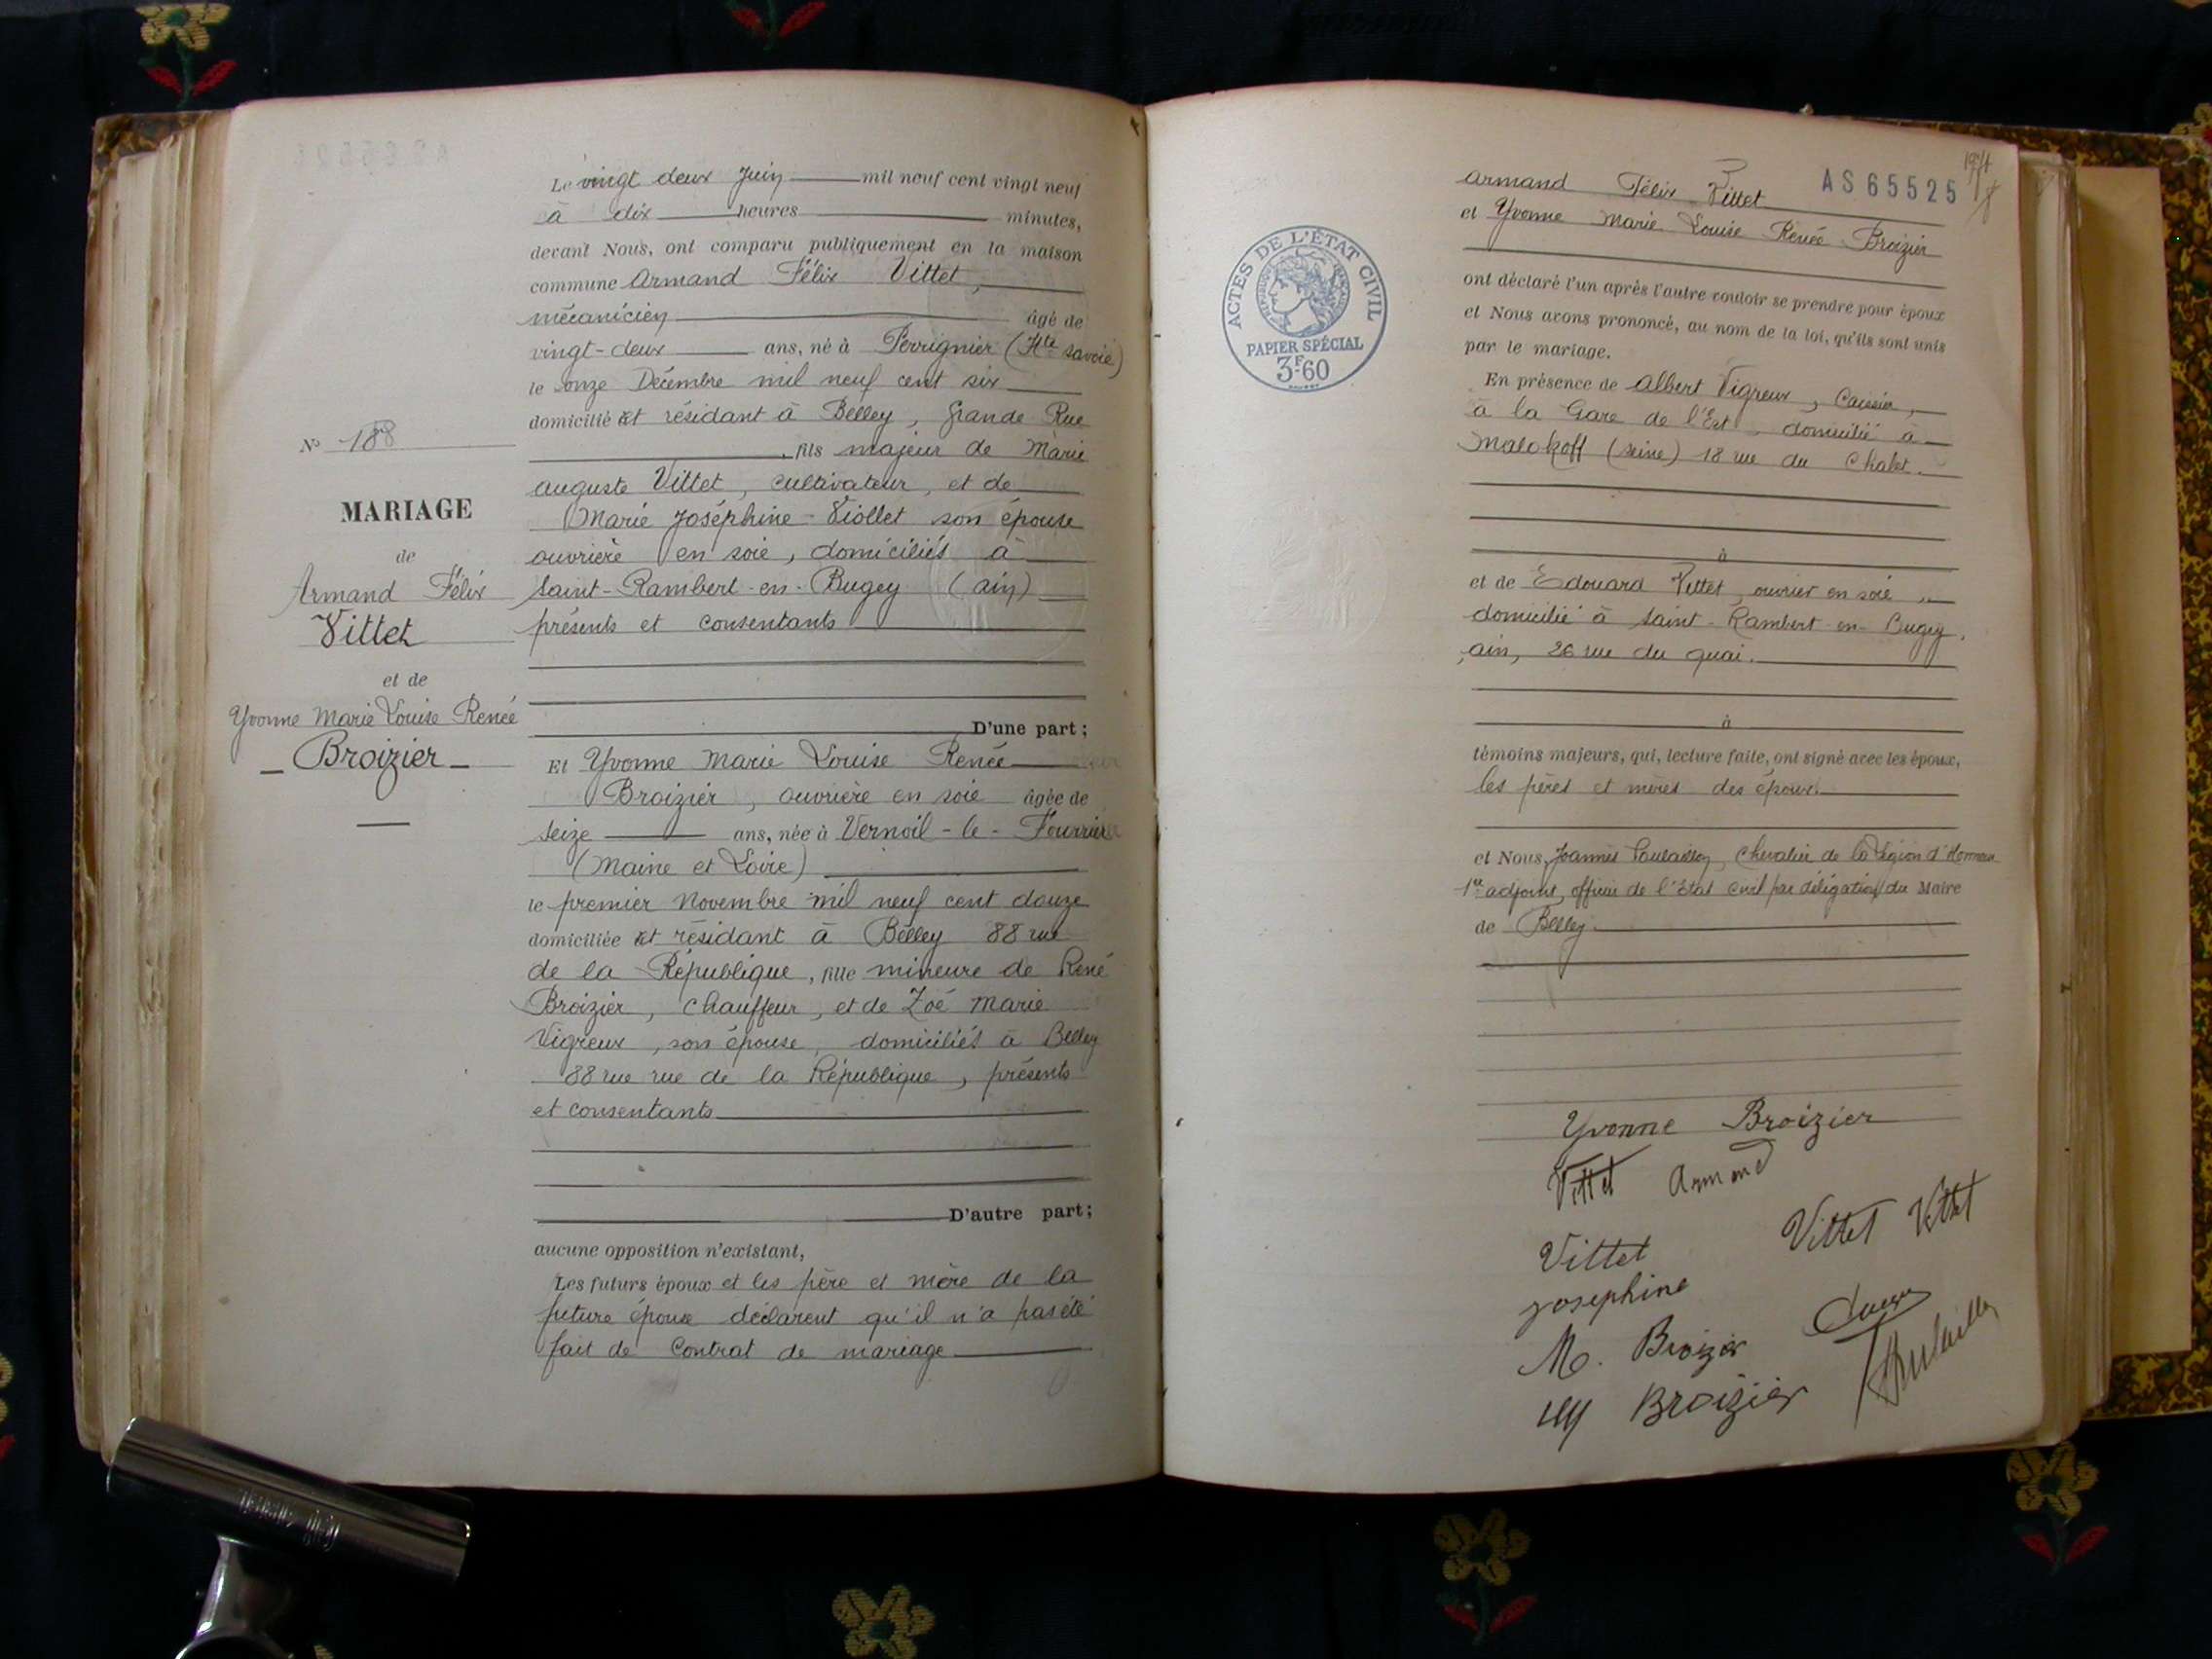 Le vingt deux Juin mil neuf cent vingt neuf
à dix heures minutes,
devant Nous, ont comparu publiquement en la maison
commune Armand Félix Vittet,
mécanicien âgé de
vingt-deux ans, né à Perrignier (Hte Savoie)
le onze Décembre mil neuf cent six
domicilié et résidant à Belley, Grande Rue
, fils majeur de Marie
Auguste Vittet, cultivateur, et de
Marie Joséphine Viollet son épouse
ouvrière en soie, domiciliés à
Saint-Rambert-en-Bugey (Ain)
présents et consentants
D'une part;
Et Yvonne Marie Louise Renée
Broizier, ouvrière en soie âgée de
seize ans, née à Vernoil-le-Fourrier
(Maine et Loire)
le premier Novembre mil neuf cent douze
domiciliée et résidant à Belley 88 rue
de la République, fille mineure de René
Broizier, Chauffeur, et de Zoé Marie
Vigreux, son épouse, domiciliés à Belley
88 rue rue de la République, présents
et consentants
D'autre part;
aucune opposition n'existant,
Les futurs époux et les père et mère de la
future épouse déclarent qu'il n'a pas été
fait de Contrat de mariage
No 188
MARIAGE
de
Armand Félix
Vittet
et de
Yvonne Marie Louise Renée
Broizier
AS65525
Armand Félix Vittet
et Yvonne Marie Louise Renée Broizier
ont déclaré l'un après l'autre vouloir se prendre pour époux
et Nous avons prononcé, au nom de la loi, qu'ils sont unis
par le mariage.
En présence de Albert Vigreux, Caissier,
à la Gare de l'Est, domicilié à
Malakoff (Seine) 18 rue du Chalet.
à
et de Edouard Vittet, ouvrier en soie
domicilié à Saint-Rambert-en-Bugey,
Ain, 26 rue du quai.
à
témoins majeurs, qui, lecture faite, ont signé avec les époux,
les pères et mères des époux.
et Nous, Joannès Chevalier de la Légion d'Honneur
1er adjoint, officier de l'Etat Civil par délégation du Maire
de Belley
ACTES DE L'ÉTAT CIVIL
RÉPUBLIQUE FRANÇAISE
PAPIER SPÉCIAL
3F60
Yvonne Broizier
Vittet Armand
Vittet Vittet
Vittet
Josephine
M. Broizier
Broizier